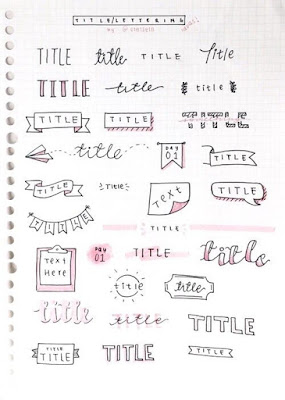 TITLE/LETTERING
TITLE title TITLE Title
TITLE title title
TITLE TITLE
title DAY 01 TITLE
TITLE Title TEXT TITLE
TITLE
TITLE
TEXT HERE DAY 01 TITLE title
title title
title title TITLE
TITLE TITLE TITLE TITLE